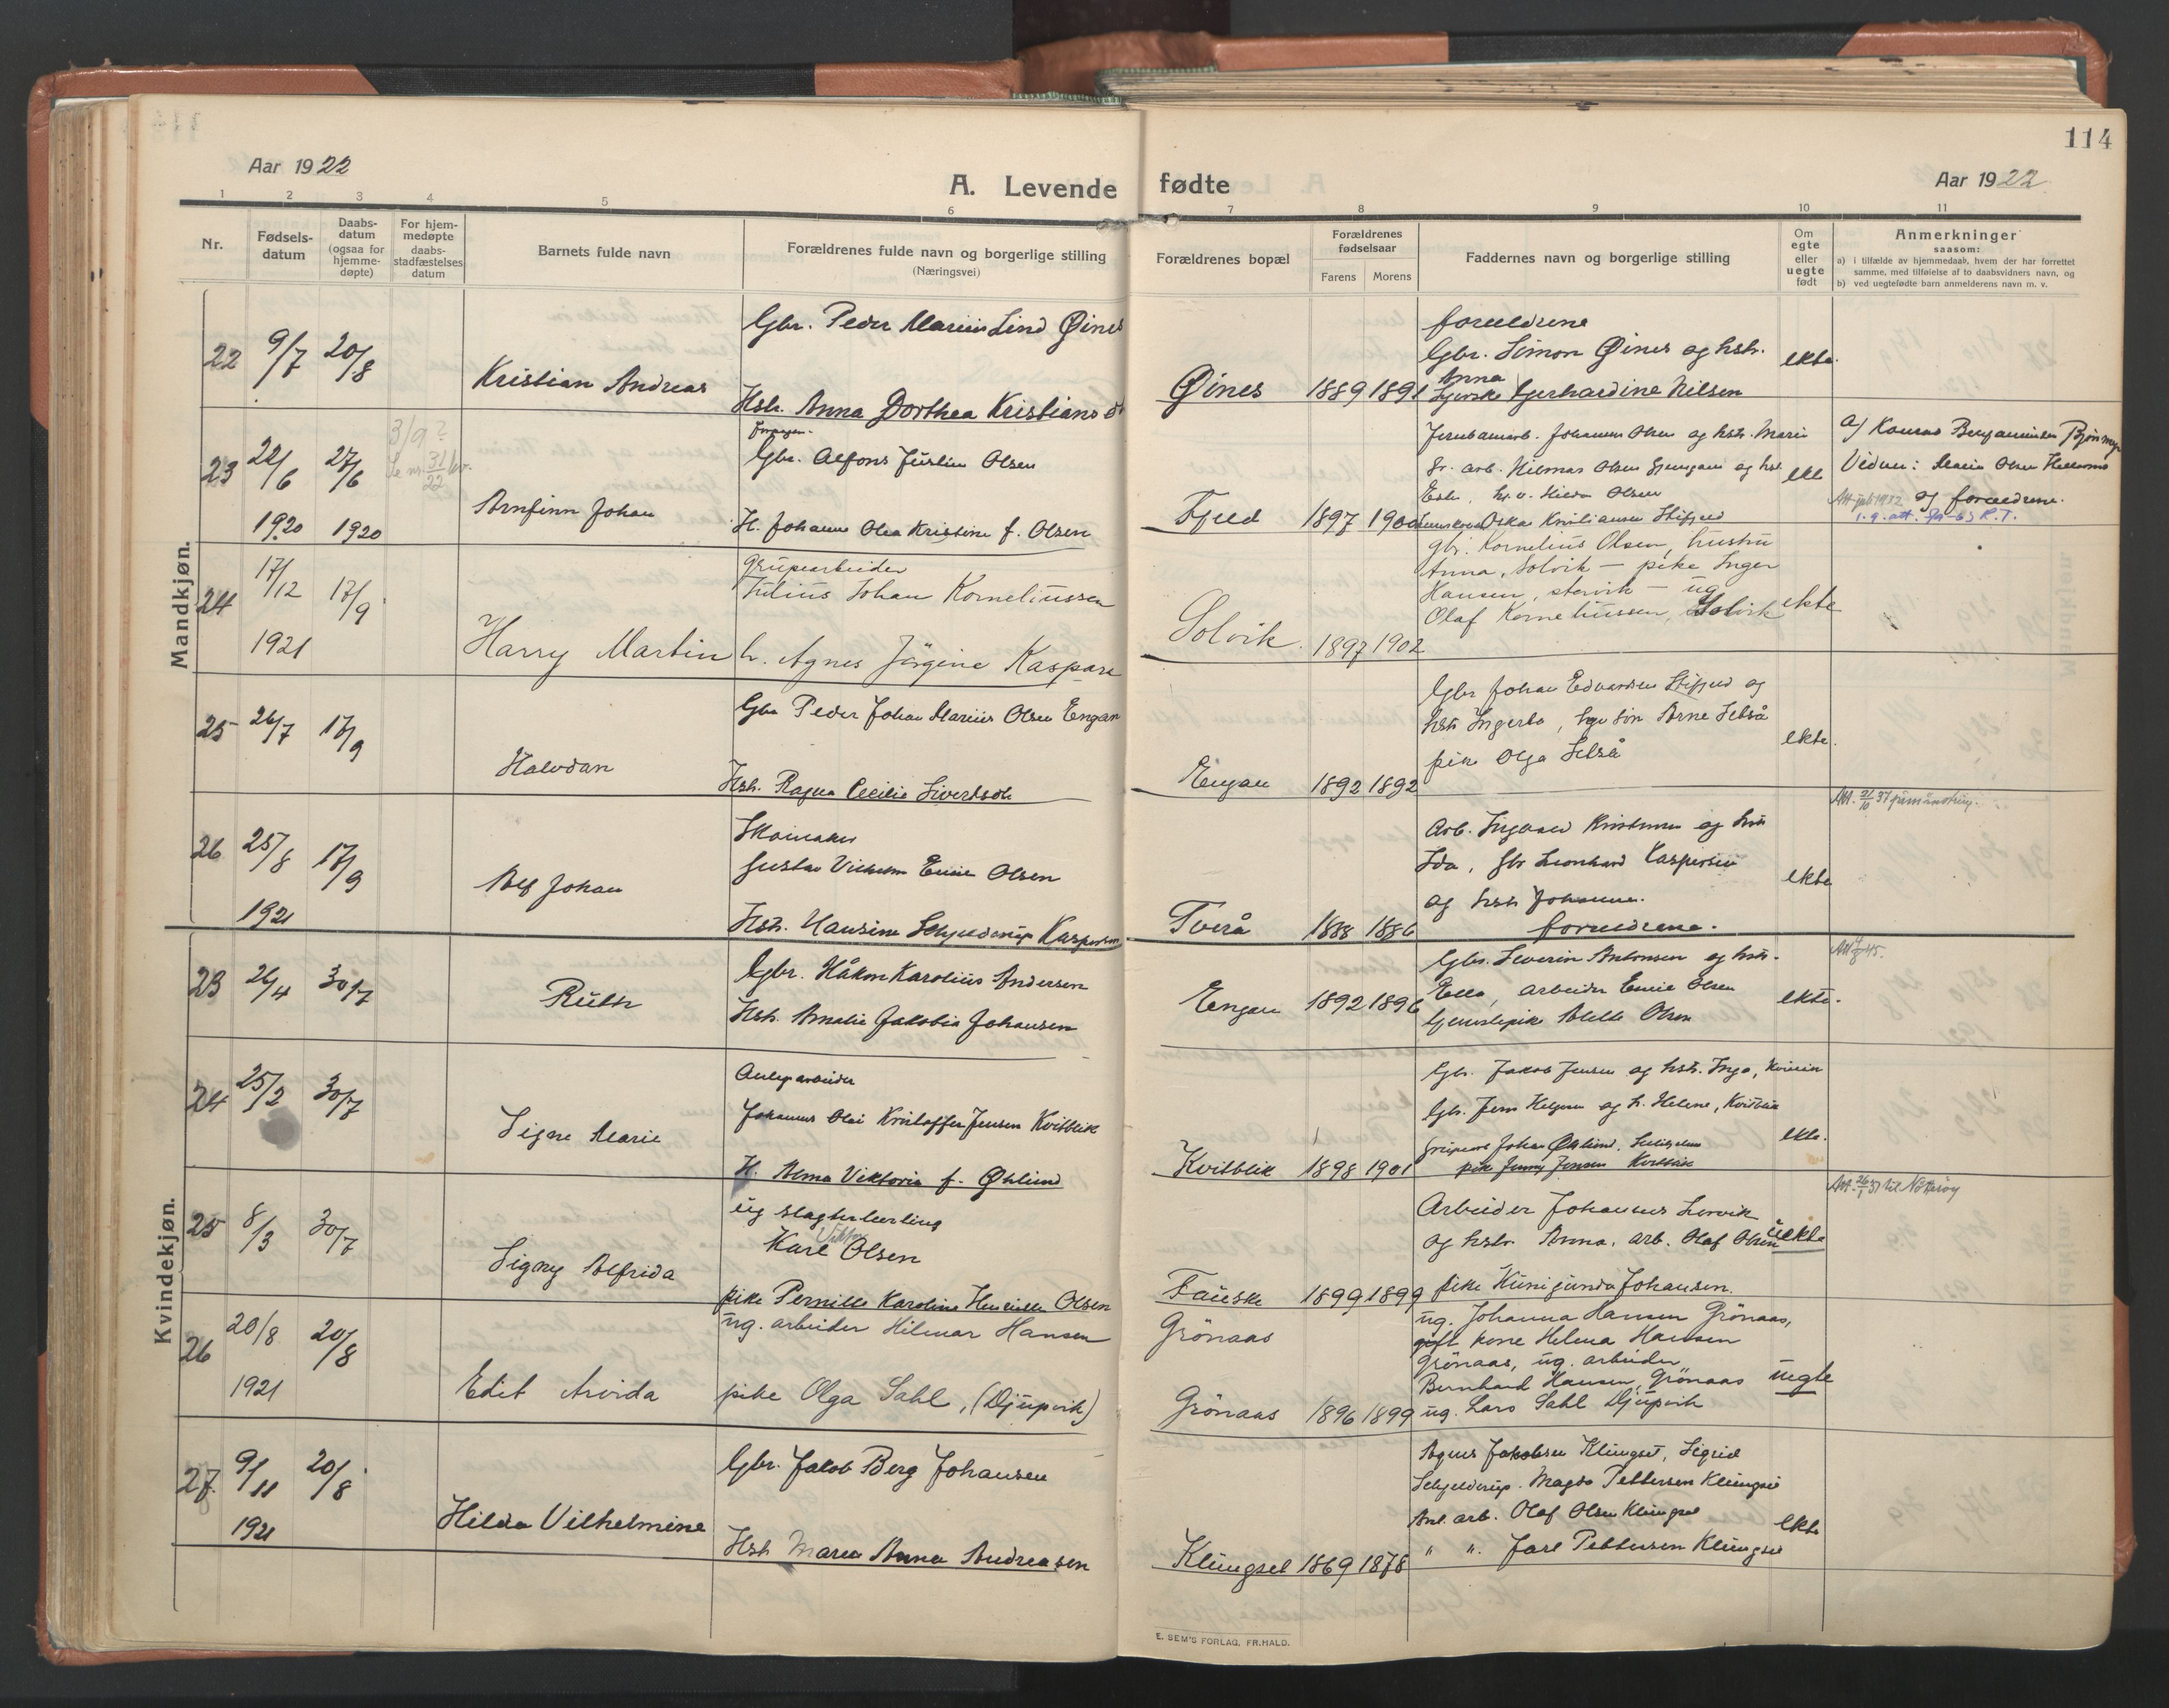 114
Aar 1922
A. Levende fødte
Aar 1922
1 2 3 4 5 6 7 8 9 10 11
Nr.
Fødsels-
datum
Daabs-
datum
(ogsaa for
hjemme-
døpte)
For hjem-
medøpte
daabs-
stadfæstelses
datum
Barnets fulde navn
Forældrenes fulde navn og borgerlige stilling
(Næringsvei)
Forældrenes bopæl
Forældrenes
fødselsaar
Farens Morens
Faddernes navn og borgerlige stilling
Om
egte
eller
uegte
født
Anmerkninger
saasom:
a) i tilfælde av hjemmedaab, hvem der har forrettet
samme, med tilføielse af to daabsvidners navn, og
b) ved uegtefødte barn anmelderens navn m. v.
Mandkjøn.
22 9/7 20/8
Kristian Andreas
Gbr. Peder Marius Lind Øines
Hstr. Anna Dorthea Kristians
Øines 1889 1891
foreldrene
Gbr. Simon Øines og hstr.
Anna
Gjerhardine Nilsen
ekte.
23 22/6 27/6
1920 1920
3/9?
Se nr. 31
22
Arnfinn Johan
Gbr. Alfons Justin Olsen
H. Johanne Olea Kristine f. Olsen
Fjeld 1897 1900
Jernbanearb. Johannes Olsen og hstr. Marie
Gr. arb. Hilmar Olsen og hstr.
Hilda Olsen
Oskar Kristiansen Stifjeld
ekte
a) Konrad Benjaminsen
Vidner: Maria Olsen
og foreldrene.
24 17/12 17/9
1921
Harry Martin
Grubearbeider
Julius Johan Korneliussen
h. Agnes Jörgine Kaspars
Solvik 1897 1902
gbr. Kornelius Olsen, hustru
Anna, Solvik — pike Inger
Hansen, — ug
Olaf Korneliussen, Solvik
ekte
25 26/7 17/9
Halvdan
Gbr Peder Johan Marius Olsen Engan
Hstr. Ragna Cecilie Sivertsdtr
Engan 1892 1892
Gbr Johan Edvardsen Stifjeld og
hstr Ingerta, Arne Setså
pike Olga Setså
ekte.
26 25/8 17/9
1921
Alf Johan
Skomaker
Gustav Vilhelm Emil Olsen
Hstr. Hansine Schjelderup Kaspersen
Tverå 1888 1886
Att. 21/10 37
Arb. Ingvald Kristensen og hstr
Ida, gbr Leonhard Kaspersen
og hstr Johanna.
foreldrene.
ekte
Kvindekjøn.
23 26/4 30/7
Ruth
Gbr. Håkon Karolius Andersen
Hstr. Amalie Jakobia Johansen
Engan 1892 1896
Gbr. Severin Antonsen og hstr.
Ella, arbeider Emil Olsen
Olsen
ekte.
24 25/2 30/7
Signe Marie
Anlegsarbeider
Johannes Olai Kristoffer Jensen Kvitblik
H. Alma Viktoria f. Øhlund
Kvitblik 1898 1901
Gbr. Jakob Jensen og hstr. Inga,
Gbr. Jens Helgesen og h. Helene, Kvitblik
Johan Øhlund.
pike Jenny Jensen Kvitblik
ekte.
25 8/3 30/7
Signy Alfrida
ug slagterlærling
Viktor
Karl Olsen
pike Pernille Karoline Henrikke Olsen
Fauske 1899 1899
Att. 26/1 37 til Nøtterøy
Arbeider Johannes Lervik
og hstr Anna, arb. Olaf Olsen
pike Kunigunda Johansen.
uekte
26 20/8 20/8
1921
Edit Arvida
ug. arbeider Hilmar Hansen
pike Olga Sahl, (Djupvik)
Grönaas
Grönaas 1896 1899
ug. Johanna Hansen Grönaas,
gift kone Helma Hansen
Grönaas, ug. arbeider
Bernhard Hansen, Grönaas
ug. Lars Sahl Djupvik
uegte
27. 9/11 20/8
1921
Hilda Vilhelmine
Gbr. Jakob Berg Johansen
Hstr Maria Anna Andreasen
Klungset 1869 1878
Agnes Jakobsen Klungset, Sigrid
Schjelderup. Magda Pettersen Klungset
Anl. arb. Olaf Olsen Klungset
" ". Jarl Pettersen Klungset
ekte
E. SEM'S FORLAG, FR.HALD.